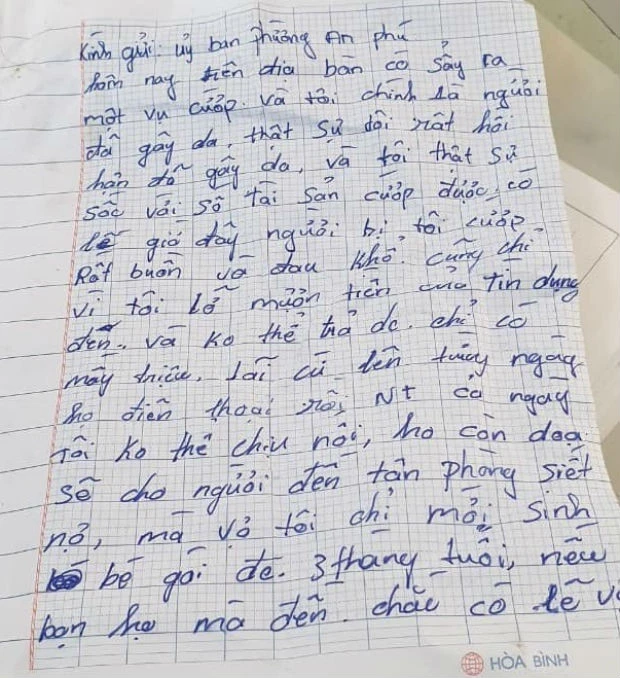 Kính gửi: ủy ban phường An phú
hôm nay trên địa bàn có sảy ra
một vụ cướp. và tôi chính là người
đã gây da, thật sự tôi rất hối
hận đã gây da, và tôi thật sự
sốc với số tài sản cướp được, có
lẽ giờ đây người bị tôi cướp
Rất buồn và đau khổ. cũng chỉ
vì tôi lỡ mượn tiền của Tín dụng
đen. và ko thể trả dc. chỉ có
mấy triệu. lãi cứ lên từng ngày
họ điện thoại rồi Nt cả ngày
Tôi ko thể chịu nổi, họ còn dọa
sẽ cho người đến tận phòng siết
nợ, mà vợ tôi chỉ mới sinh
bé gái dc. 3 tháng tuổi, nếu
bọn họ mà đến. chắc có lẽ vợ
HÒA BÌNH